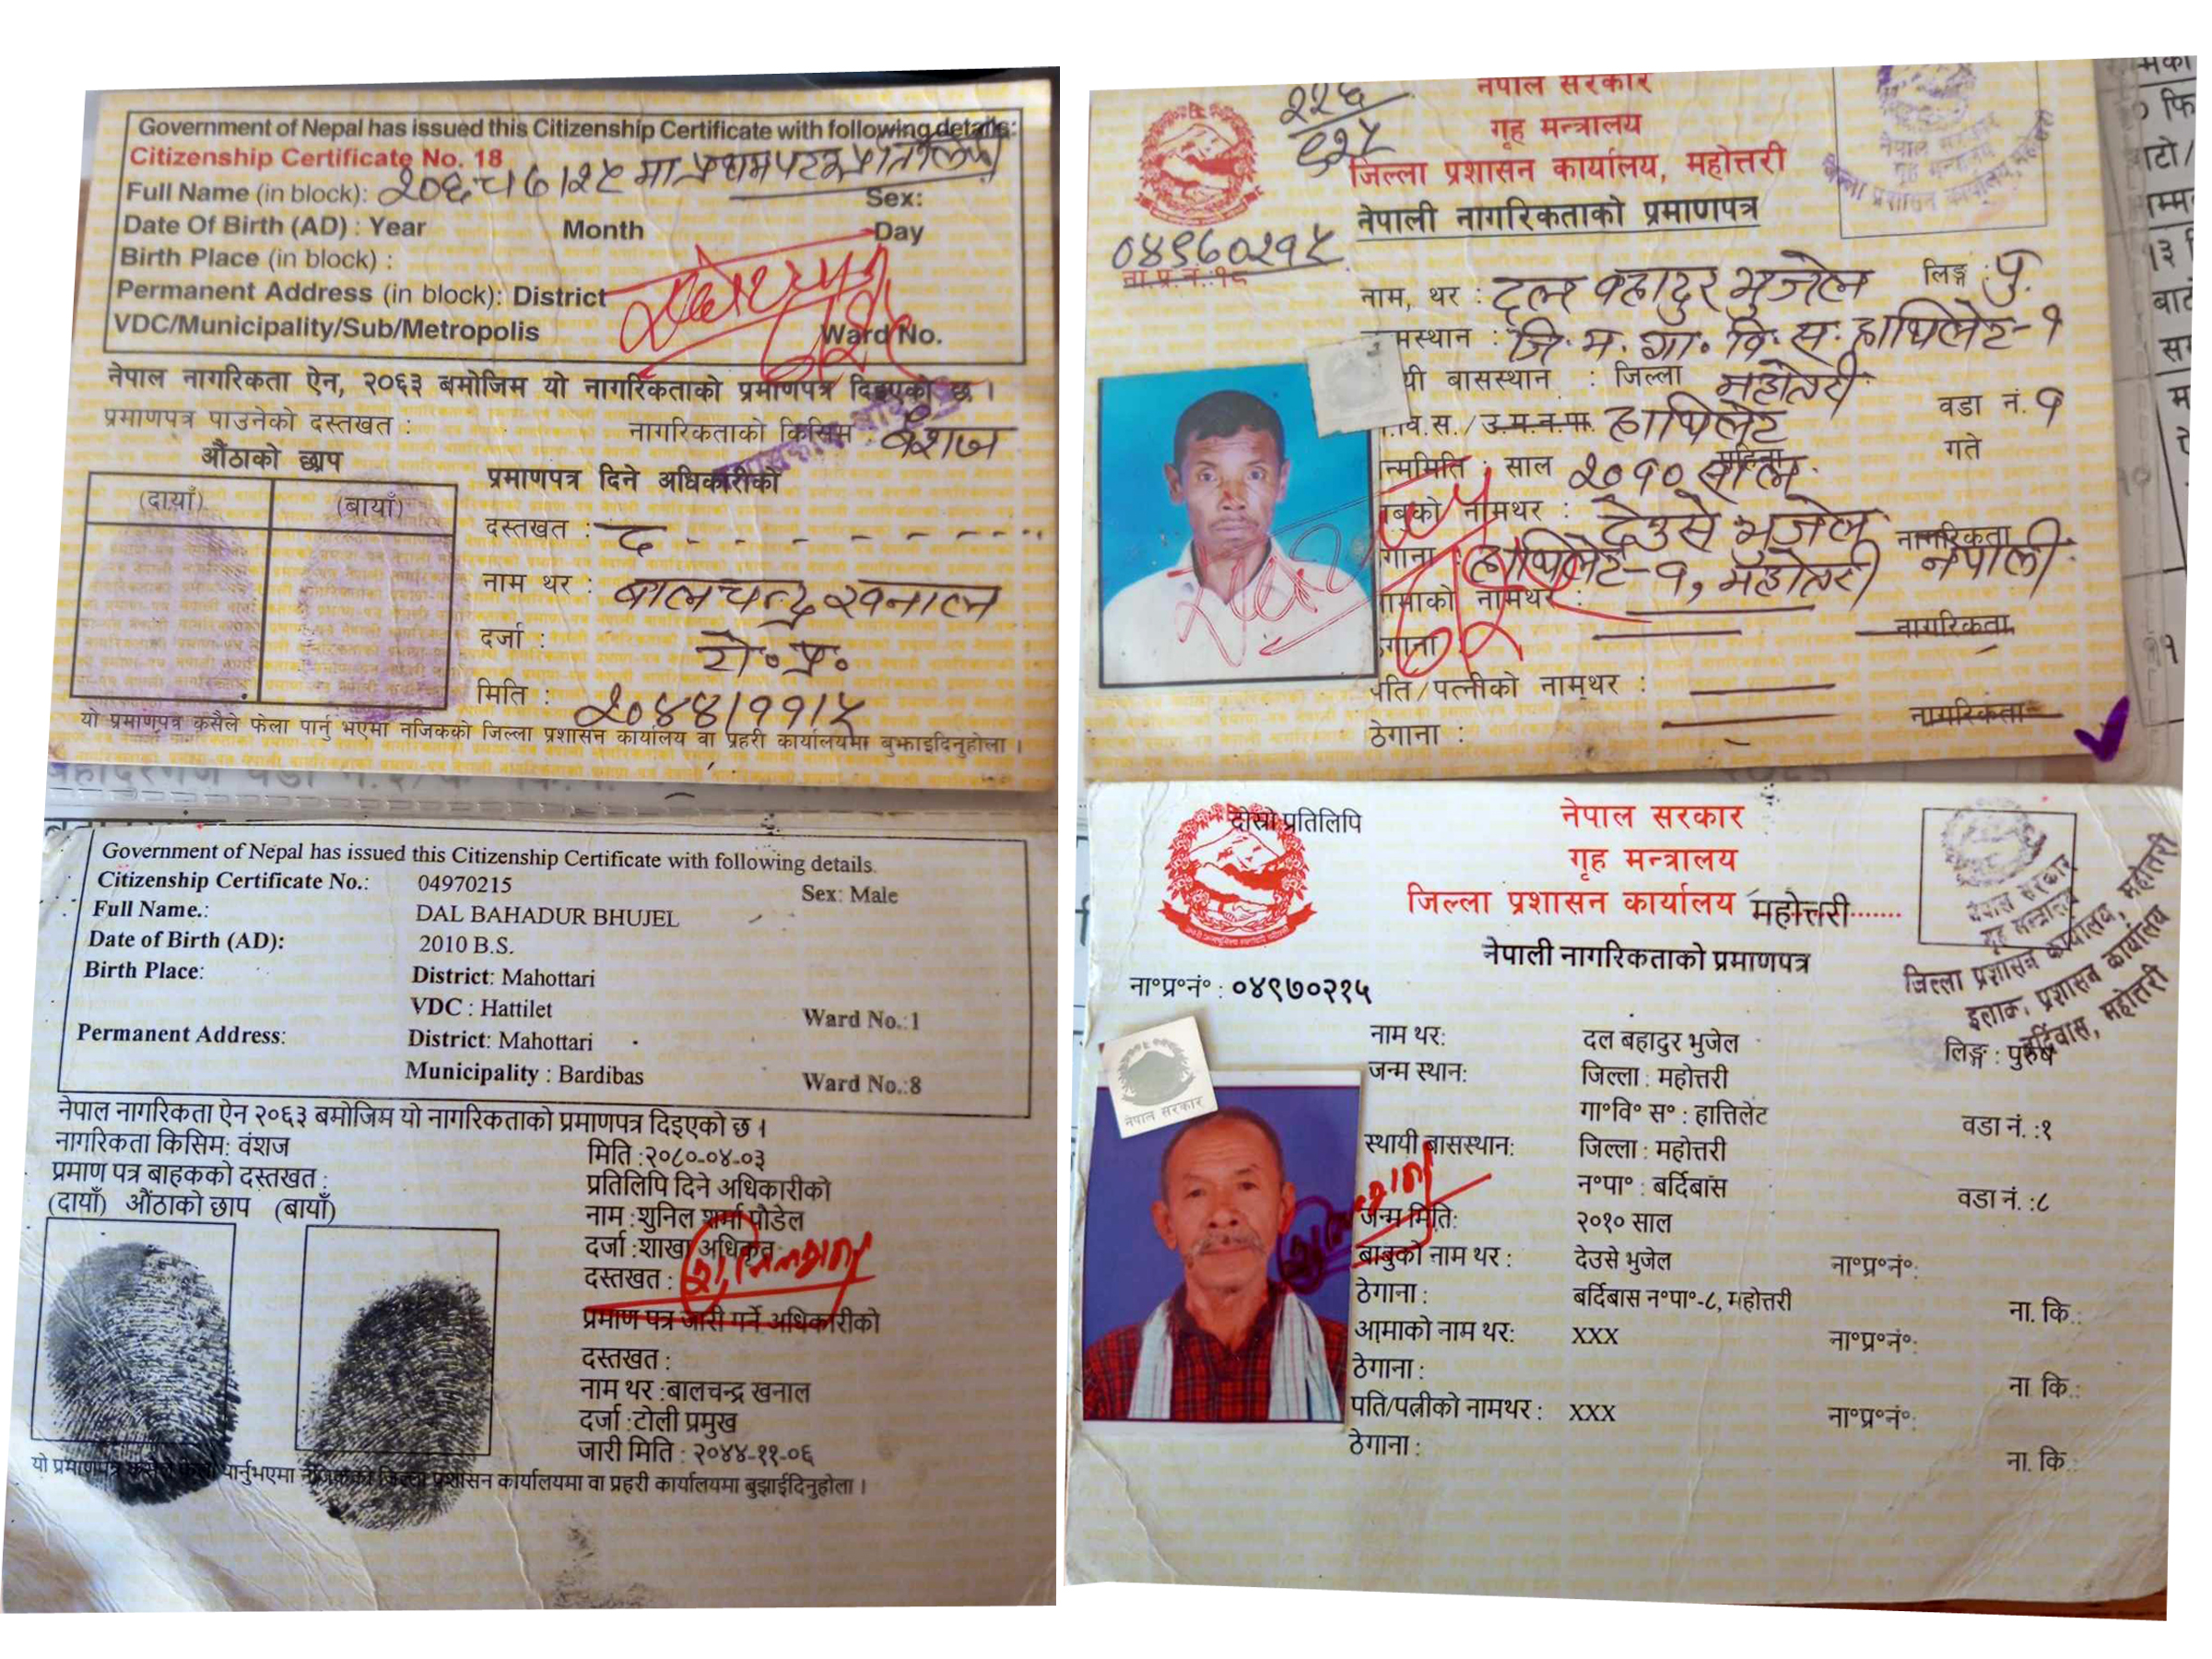 Government of Nepal has issued this Citizenship Certificate with following details:
Citizenship Certificate No. 18
२०६५।७।२५ मा प्रथम पटक प्रतिलिपि
Full Name (in block): Sex:
Date Of Birth (AD) : Year Month Day
Birth Place (in block) :
Permanent Address (in block): District
VDC/Municipality/Sub/Metropolis Ward No.
नेपाल नागरिकता ऐन, २०६३ बमोजिम यो नागरिकताको प्रमाणपत्र दिइएको छ ।
प्रमाणपत्र पाउनेको दस्तखत : नागरिकताको किसिम : वंशज
औंठाको छाप
(दायाँ) (बायाँ)
प्रमाणपत्र दिने अधिकारीको
दस्तखत : द-
नाम थर : बालचन्द्र खनाल
दर्जा : टो.प्र.
मिति : २०४४।११।५
यो प्रमाणपत्र कसैले फेला पार्नु भएमा नजिकको जिल्ला प्रशासन कार्यालय वा प्रहरी कार्यालयमा बुझाइदिनुहोला ।
Government of Nepal has issued this Citizenship Certificate with following details.
Citizenship Certificate No.: 04970215 Sex: Male
Full Name.: DAL BAHADUR BHUJEL
Date of Birth (AD): 2010 B.S.
Birth Place: District: Mahottari
VDC : Hattilet Ward No.:1
Permanent Address: District: Mahottari
Municipality : Bardibas Ward No.:8
नेपाल नागरिकता ऐन २०६३ बमोजिम यो नागरिकताको प्रमाणपत्र दिइएको छ ।
नागरिकता किसिम: वंशज
प्रमाण पत्र बाहकको दस्तखत :
(दायाँ) औंठाको छाप (बायाँ)
मिति :२०८०-०४-०३
प्रतिलिपि दिने अधिकारीको
नाम :शुनिल शर्मा पौडेल
दर्जा :शाखा अधिकृत
दस्तखत :
प्रमाण पत्र जारी गर्ने अधिकारीको
दस्तखत :
नाम थर :बालचन्द्र खनाल
दर्जा :टोली प्रमुख
जारी मिति : २०४४-११-०६
यो प्रमाणपत्र कसैले फेला पार्नुभएमा नजिकको जिल्ला प्रशासन कार्यालयमा वा प्रहरी कार्यालयमा बुझाईदिनुहोला ।
२२६
नेपाल सरकार
गृह मन्त्रालय
जिल्ला प्रशासन कार्यालय, महोत्तरी
नेपाली नागरिकताको प्रमाणपत्र
०४९७०२१५
ना.प्र.नं.:१८
नाम, थर : दल बहादुर भुजेल लिङ्ग : पु.
मस्थान : जि.म. गा.वि.स. हात्तिलेट-१
यी बासस्थान : जिल्ला महोत्तरी
.वि.स./उ.म.न.पा. हात्तिलेट वडा नं. १
न्ममिति : साल २०१० साल महिना गते
बुको नामथर : देउसे भुजेल नागरिकता
गाना : हात्तिलेट-१, महोत्तरी नेपाली
ामाको नामथर :
गाना नागरिकता
पति/पत्नीको नामथर :
नागरिकता
ठेगाना :
दोस्रो प्रतिलिपि
नेपाल सरकार
गृह मन्त्रालय
जिल्ला प्रशासन कार्यालय महोत्तरी.......
नेपाली नागरिकताको प्रमाणपत्र
नेपाल सरकार
गृह मन्त्रालय
जिल्ला प्रशासन कार्यालय, महोत्तरी
इलाका प्रशासन कार्यालय
बर्दिवास, महोत्तरी
ना॰प्र॰नं॰ : ०४९७०२१५
नाम थर: दल बहादुर भुजेल लिङ्ग : पुरुष
जन्म स्थान: जिल्ला : महोत्तरी
गा॰वि॰ स॰ : हात्तिलेट वडा नं. :१
नेपाल सरकार
स्थायी बासस्थान: जिल्ला : महोत्तरी
न॰पा॰ : बर्दिबास वडा नं. :८
जन्म मिति: २०१० साल
बाबुको नाम थर : देउसे भुजेल ना॰प्र॰नं॰:
ठेगाना : बर्दिबास न॰पा॰-८, महोत्तरी ना. कि.:
आमाको नाम थर: XXX ना॰प्र॰नं॰:
ठेगाना : ना. कि.:
पति/पत्नीको नामथर : XXX ना॰प्र॰नं॰:
ठेगाना : ना. कि.: